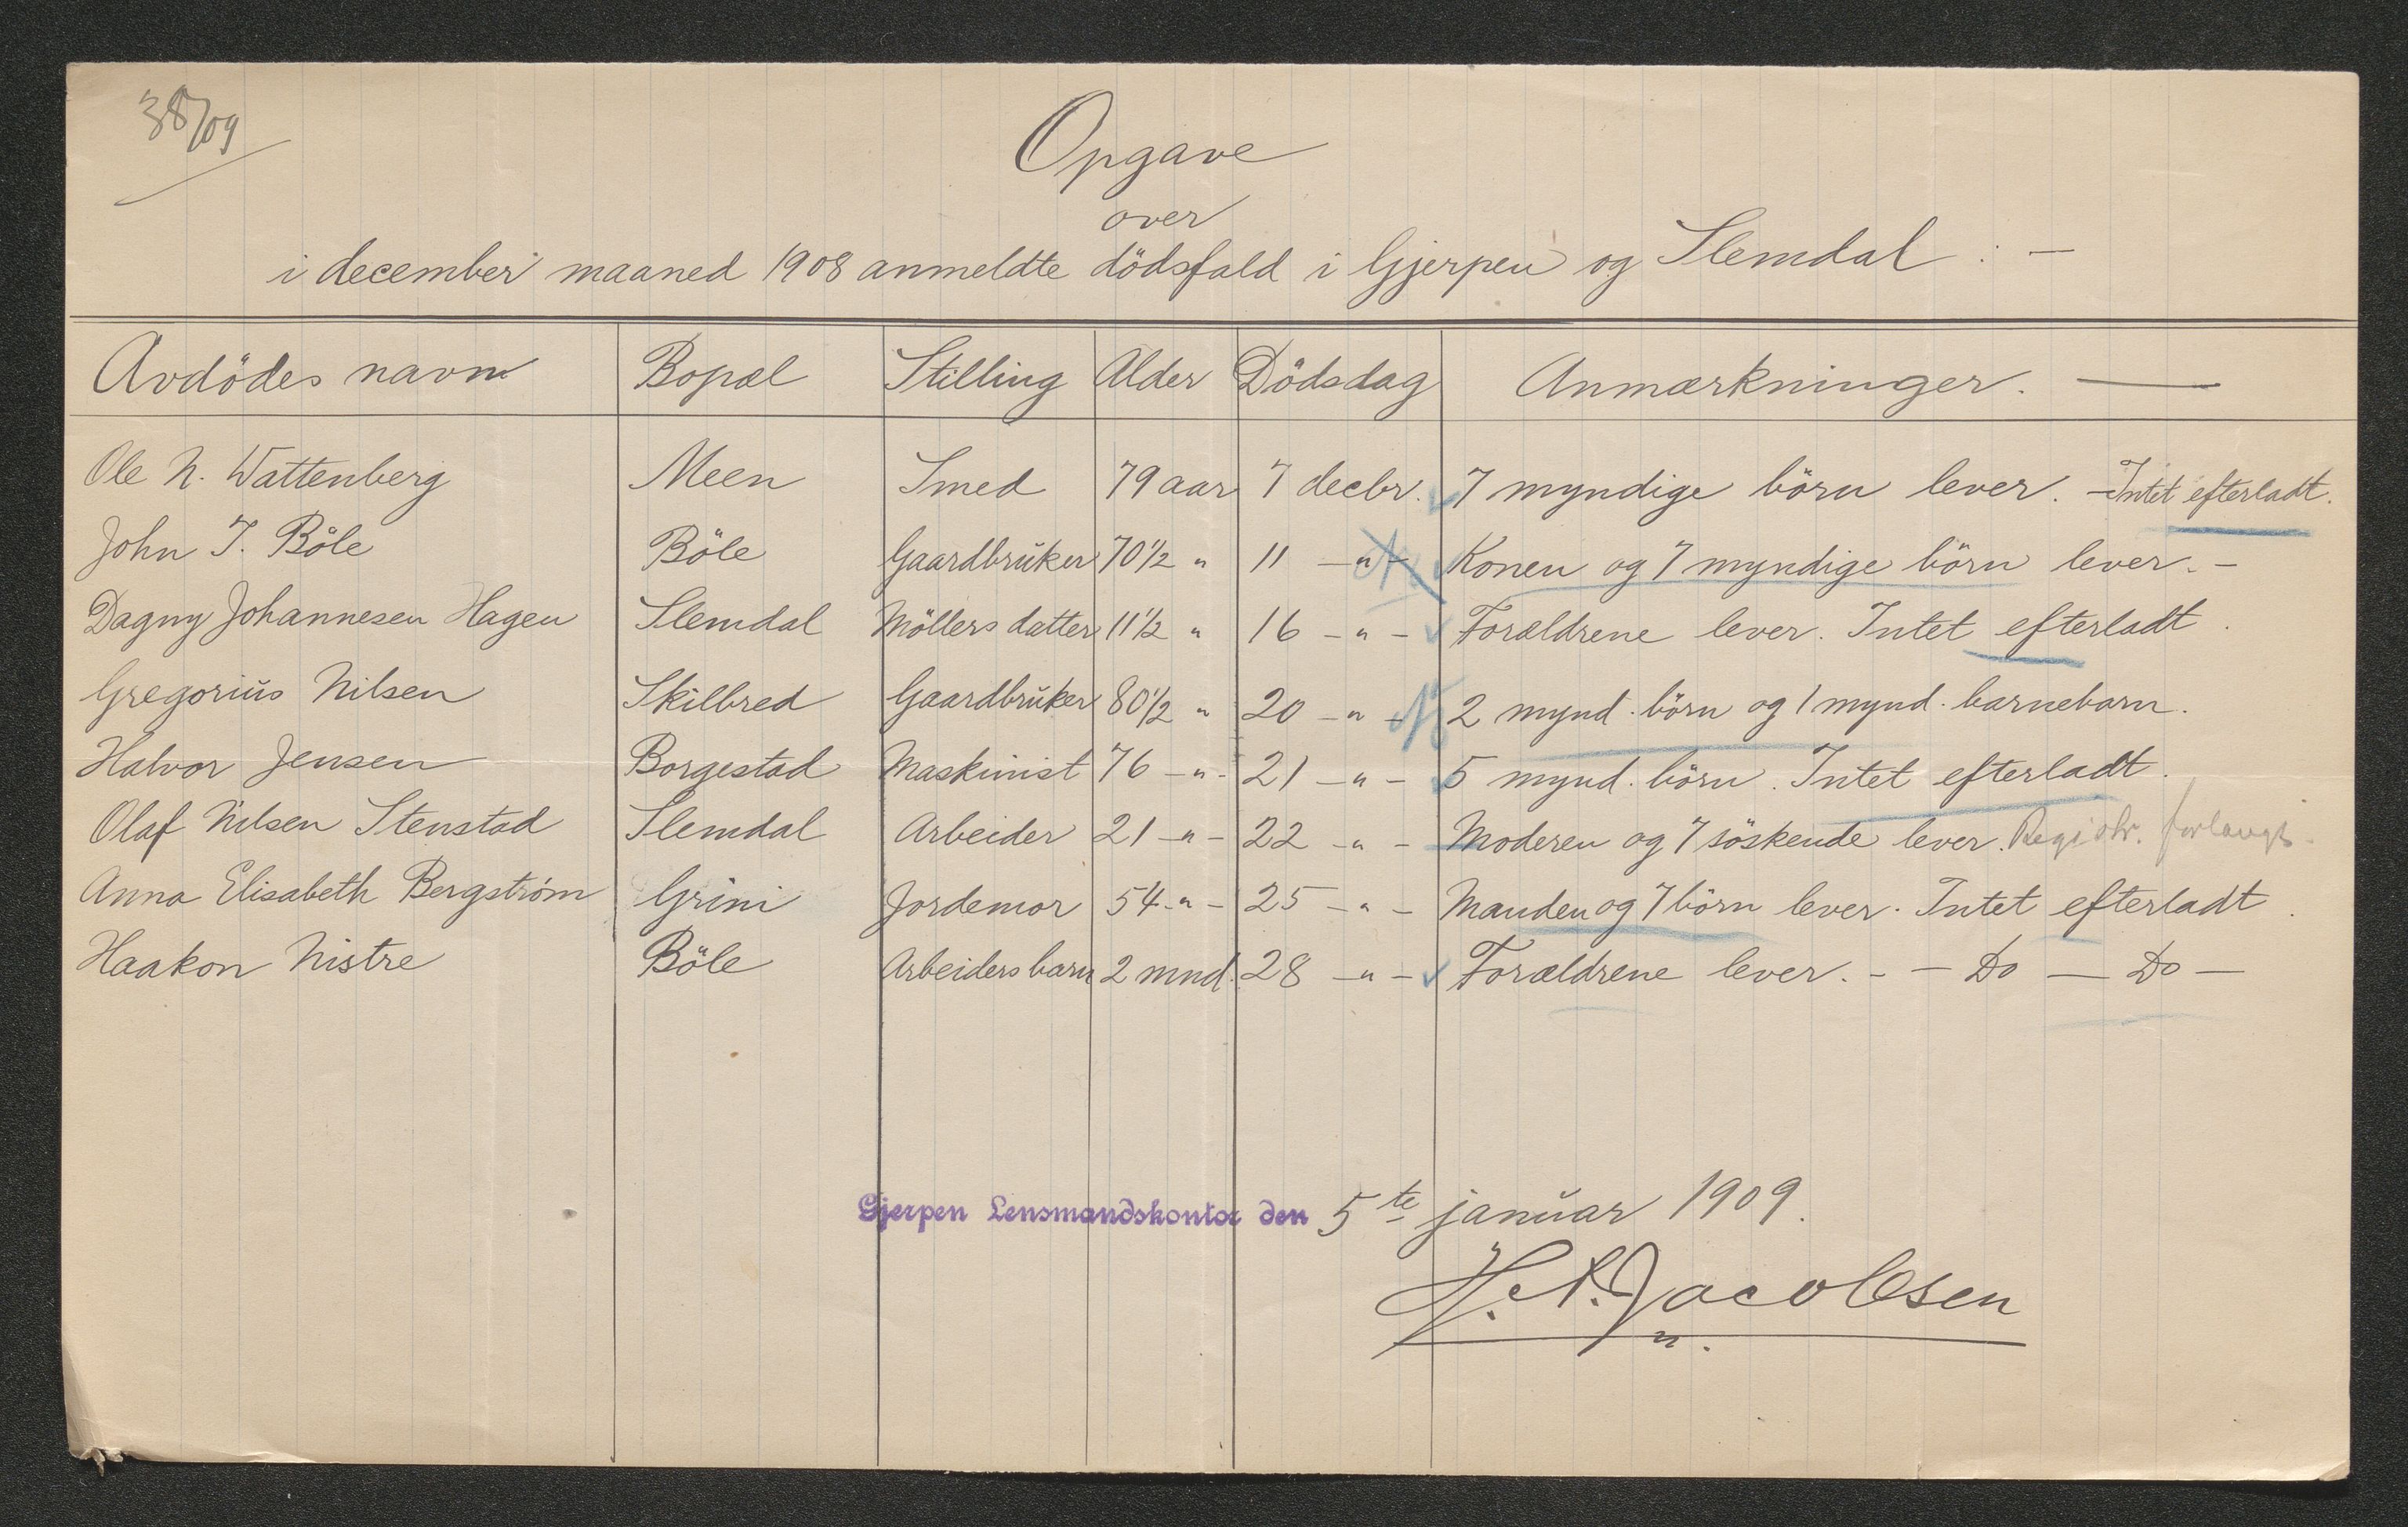 38/09
Opgave
over
i december maaned 1908 anmeldte dödsfald i Gjerpen og Slemdal : —
Avdödes navn Bopæl Stilling Alder Dödsdag Anmærkninger. —
Ole N. Wattenberg Meen Smed 79 aar 7 decbr. 7 myndige börn lever. - Intet efterladt.
John J. Böle Böle Gaardbruker 70 1/2 " 11 — " — Konen og 7 myndige börn lever. -
Dagny Johannesen Hagen Slemdal Möllers datter 11 1/2 " 16 - " - Forældrene lever. Intet efterladt.
Gregorius Nilsen Skilbred Gaardbruker 80 1/2 " 20 - " - 2 mynd. börn og 1 mynd. barnebarn.
Halvor Jensen Borgestad Maskinist 76 - " - 21 - " - 5 mynd. börn. Intet efterladt.
Olaf Nilsen Stenstad Slemdal Arbeider 21 - " - 22 - " - Moderen og 7 söskende lever. Registr. forlangt.
Anna Elisabeth Bergström Grini Jordemor 54 - " - 25 - " - Manden og 7 börn lever. Intet efterladt.
Haakon Nistre Böle Arbeiders barn 2 mnd. 28 - " - Forældrene lever. - — Do — Do —
Gjerpen Lensmandskontor den 5te januar 1909.
H. A. Jacobsen